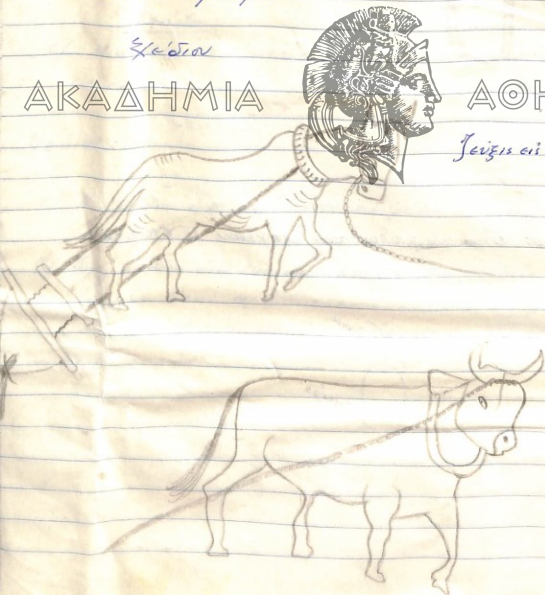 Σχέδιον
ΑΚΑΔΗΜΙΑ ΑΘΗ
ζεύξις εις